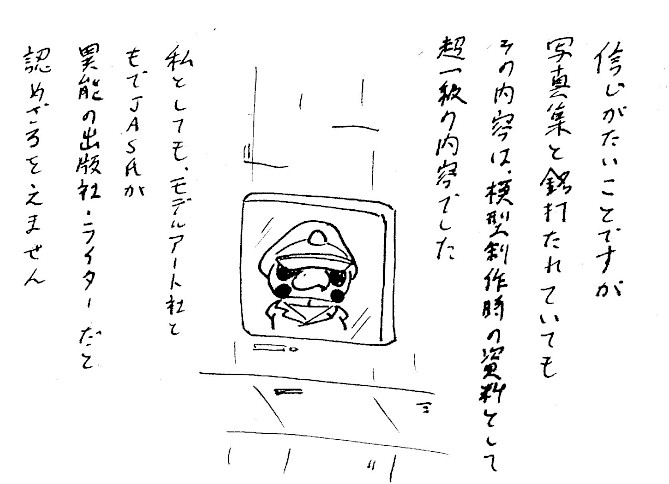 信じがたいことですが
写真集と銘打たれていても
その内容は、模型製作時の資料として
超一級の内容でした
私としても、モデルアート社と
もでJASが
異能の出版社・ライターだと
認めざろをえません